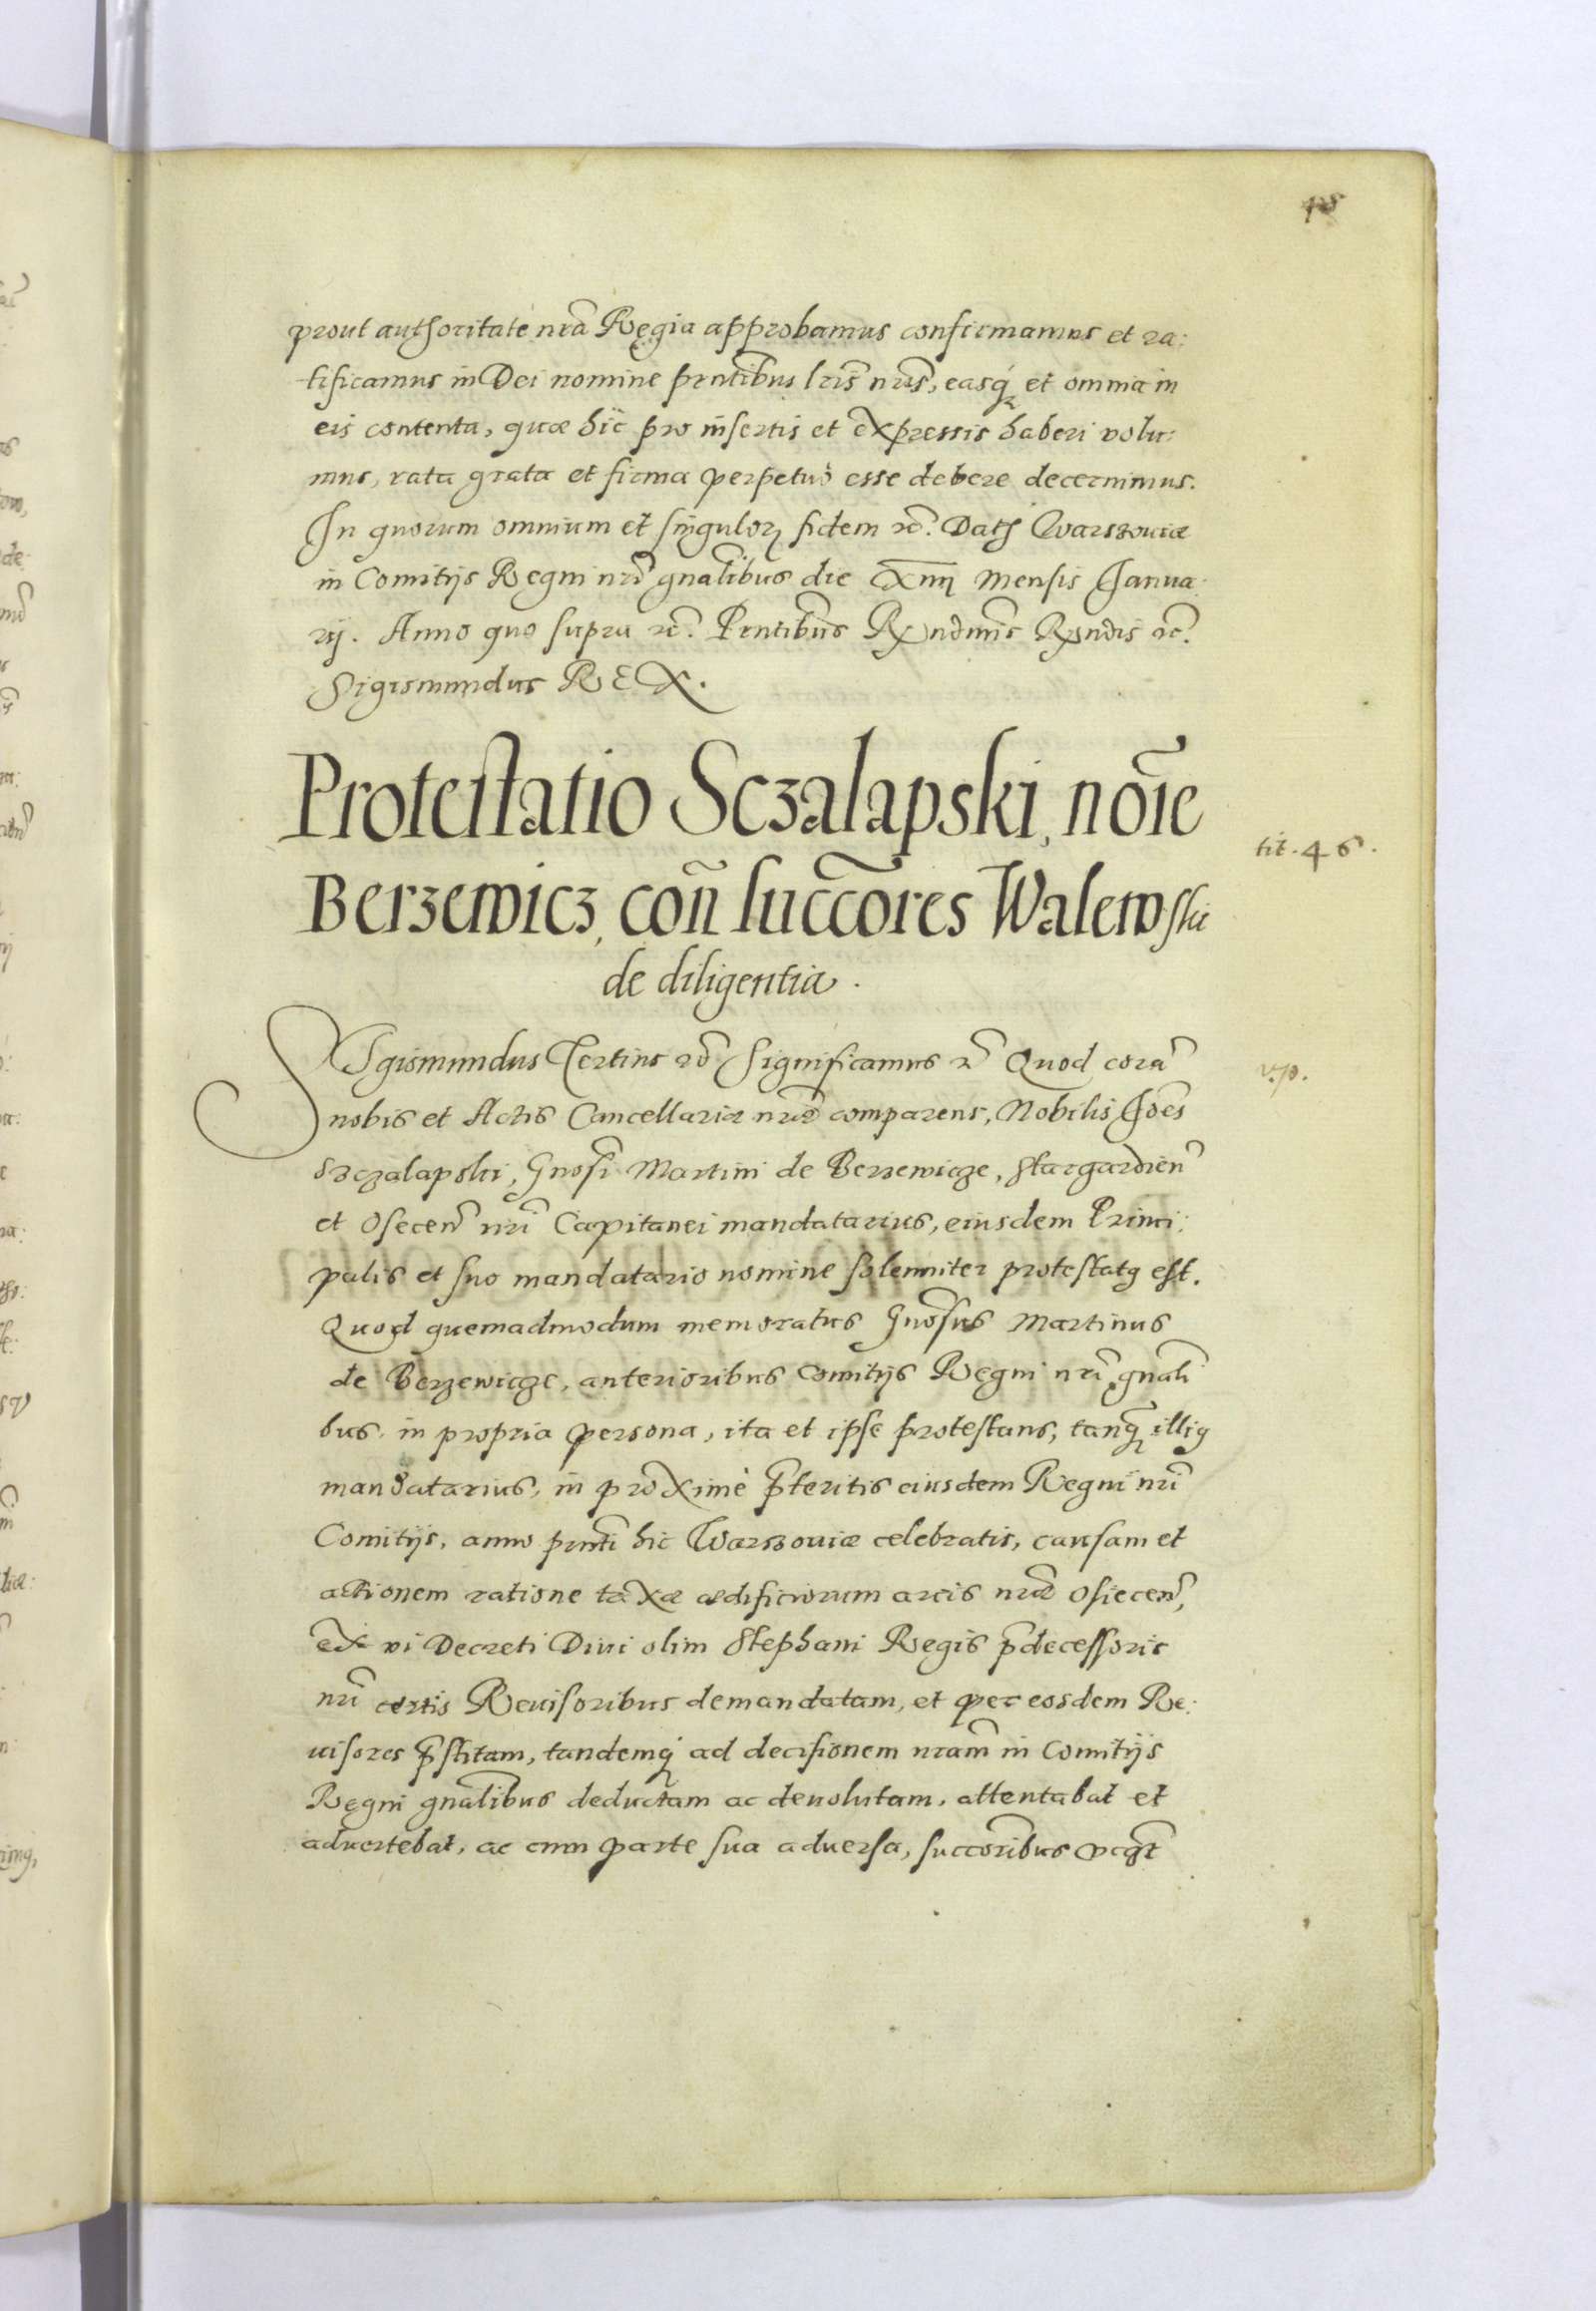 prout authoritate nrã Regia approbamus confirmamus et ra:
tificamus in Dei nomine pñtibus lris nris, easq́ et omnia in
eis contenta, quæ hîc pro insertis et expressis haberi volu:
mus, rata grata et firma perpetuò esse debere decernimus.
In quorum omnium et singulorꝝ fidem ꝛc̃. Datꝭ Warszouiæ
in Comitijs Regni nrĩ gnãlibus die Mensis Janua:
rij. Anno quo supra ꝛc̃. Pñtibus Rx̃ndmis Rx̃ndis ꝛc̃.
Sigismundus REX.
Protestatio Sczalapski, nõie
tit. 46.
Berzewicz, con̄ succ̃ores Walewski
de diligentia.
Sigismundus Tertius ꝛc̃ Significamus ꝛc̃ Quod corã
nobis et Actis Cancellariæ nræ̃ comparens, Nobilis Joẽs
Szczalapski, Gñosi Martini de Berzewicze, Stargardien̄
et Osecen̄ nrĩ Capitanei mandatarius, eiusdem Princi:
palis et suo mandatario nomine solenniter protestatꝰ est.
Quod quemadmodum memoratus Gñosus Martinus
de Berzewicze, anterioribus Comitijs Regni nrĩ gnãli
bus, in propria persona, ita et ipse protestans, tanꝗ̃ illiꝰ
mandatarius, in proximè p̃teritis eiusdem Regni nrĩ
Comitijs, anno pñti hic Warszouiæ celebratis, causam et
actionem ratione taxæ ædificiorum arcis nræ̃ Osiecen̄,
ex vi Decreti Diui olim Stephani Regis p̃decessoris
nrĩ certis Reuisoribus demandatam, et per eosdem Re:
uisores p̃stitam, tandemq́ ad decisionem nrãm in Comitijs
Regni gnãlibus deductam ac deuolutam, attentabat et
aduertebat, ac cum parte sua aduersa, succõribus